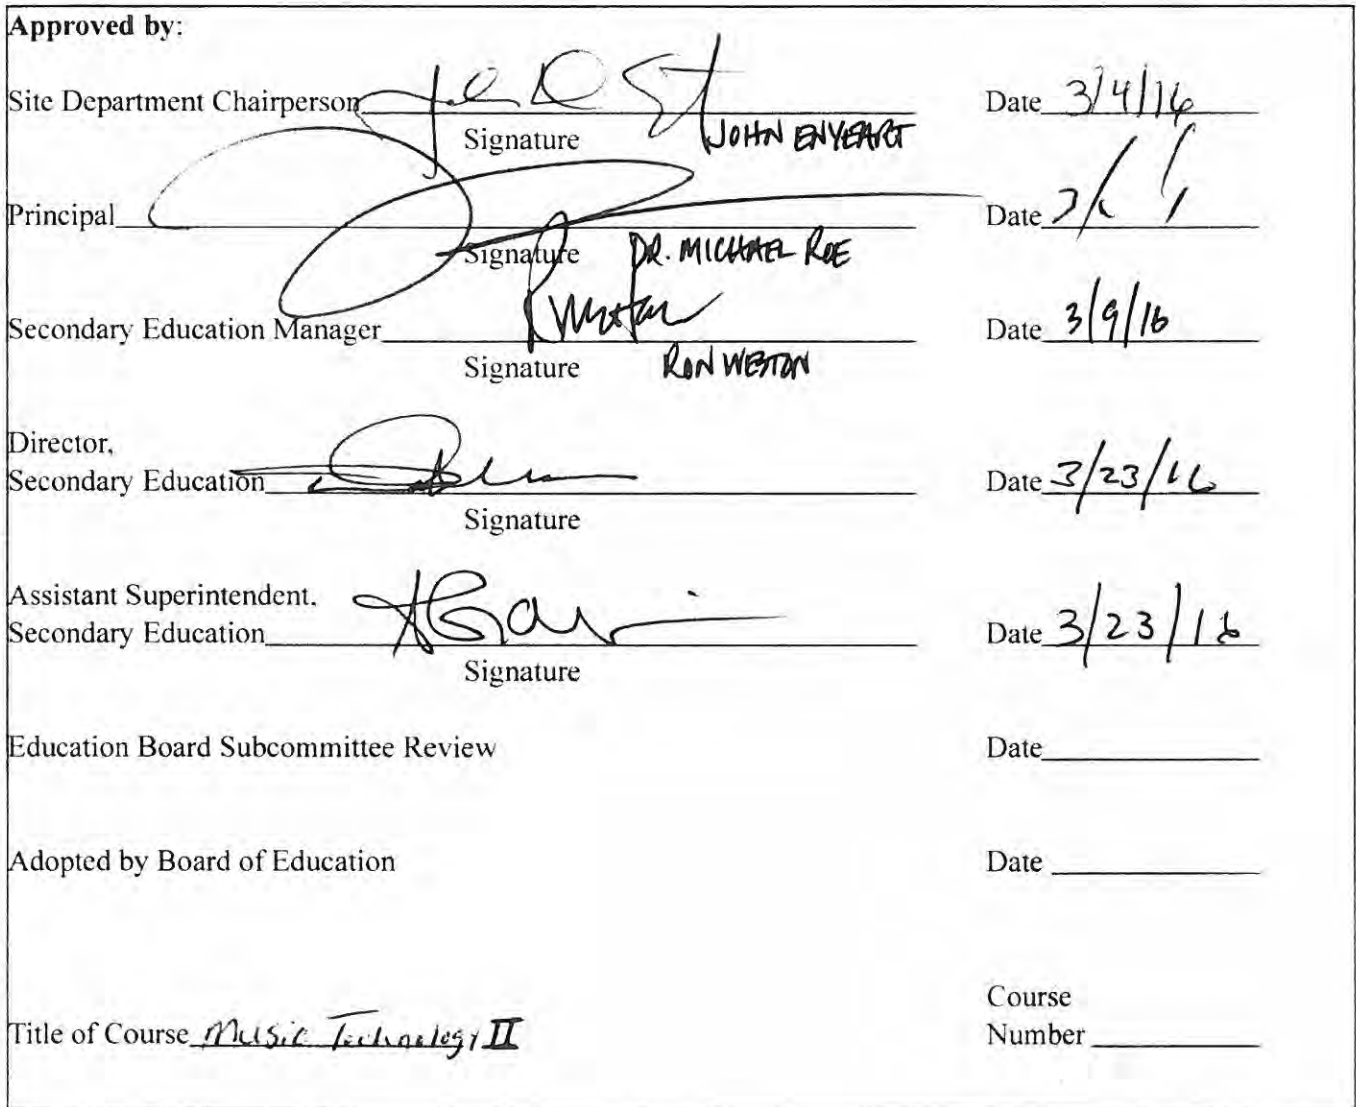 Approved by:
Site Department Chairperson Date 3/4/16
Signature JOHN ENYEART
Principal Date
Signature DR. MICHAEL ROE
Secondary Education Manager Date 3/9/16
Signature RON WESTON
Director,
Secondary Education Date 3/23/16
Signature
Assistant Superintendent,
Secondary Education Date 3/23/16
Signature
Education Board Subcommittee Review Date
Adopted by Board of Education Date
Course
Title of Course Music Technology II Number